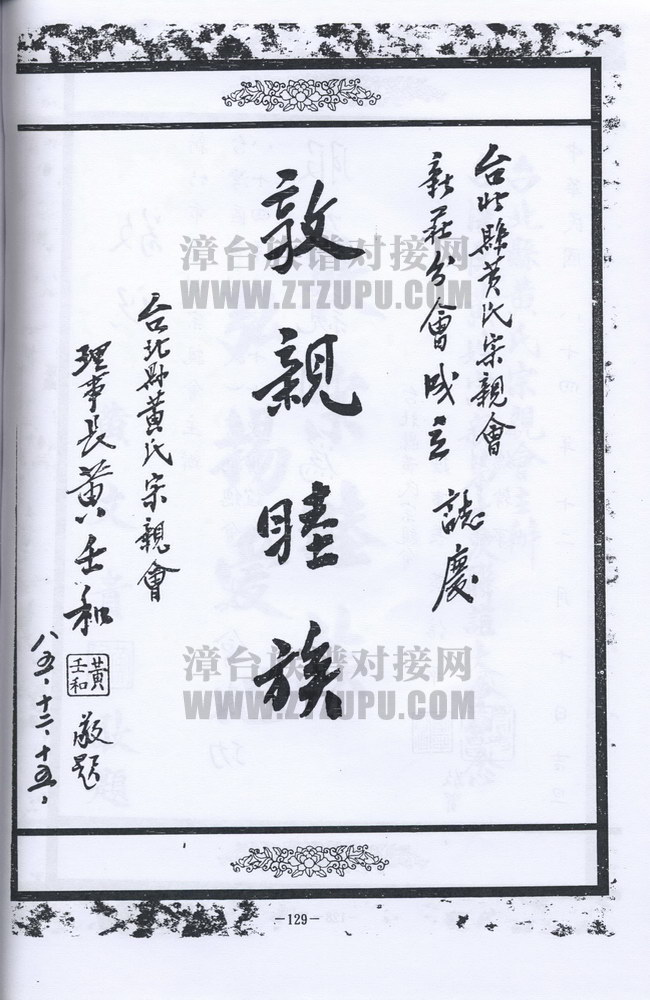 台北縣黃氏宗親會
新莊分會成立 誌慶
敦親睦族
台北縣黃氏宗親會
理事長黃壬和
黃
壬和
敬題
八五、十二、十五、
漳台族谱对接网
WWW.ZTZUPU.COM
漳台族谱对接网
WWW.ZTZUPU.COM
-129-